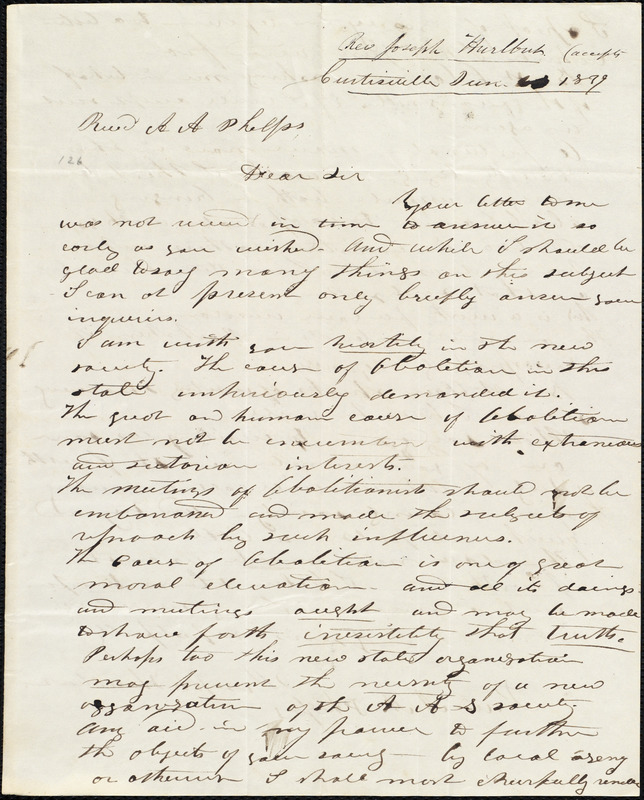 Rev Joseph Hurlbut (accepts
Curtisville Jun. 1839
Revd A A Phelps
126
Dear Sir
Your letter to me
was not received in time to answer it so
early as you wished. And while I should be
glad to say many things on this subject
I can at present only briefly answer your
inquiries.
I am with you heartily in the new
society. The cause of Abolition in this
state imperiously demanded it.
The great and human cause of Abolition
must not be incumbered with extraneous
and sectarian interests.
The meetings of Abolitionists should not be
embarrassed and made the subjects of
reproach by such influences.
The cause of Abolition is one of great
moral elevation and all its doings
and meetings ought and may be made
to shave forth irresistibly that truth.
Perhaps too this new state organization
may prevent the necessity of a new
organization of the A A S society.
Any aid in my power to further
the objects of your society by local agency
or otherwise I shall most cheerfully render